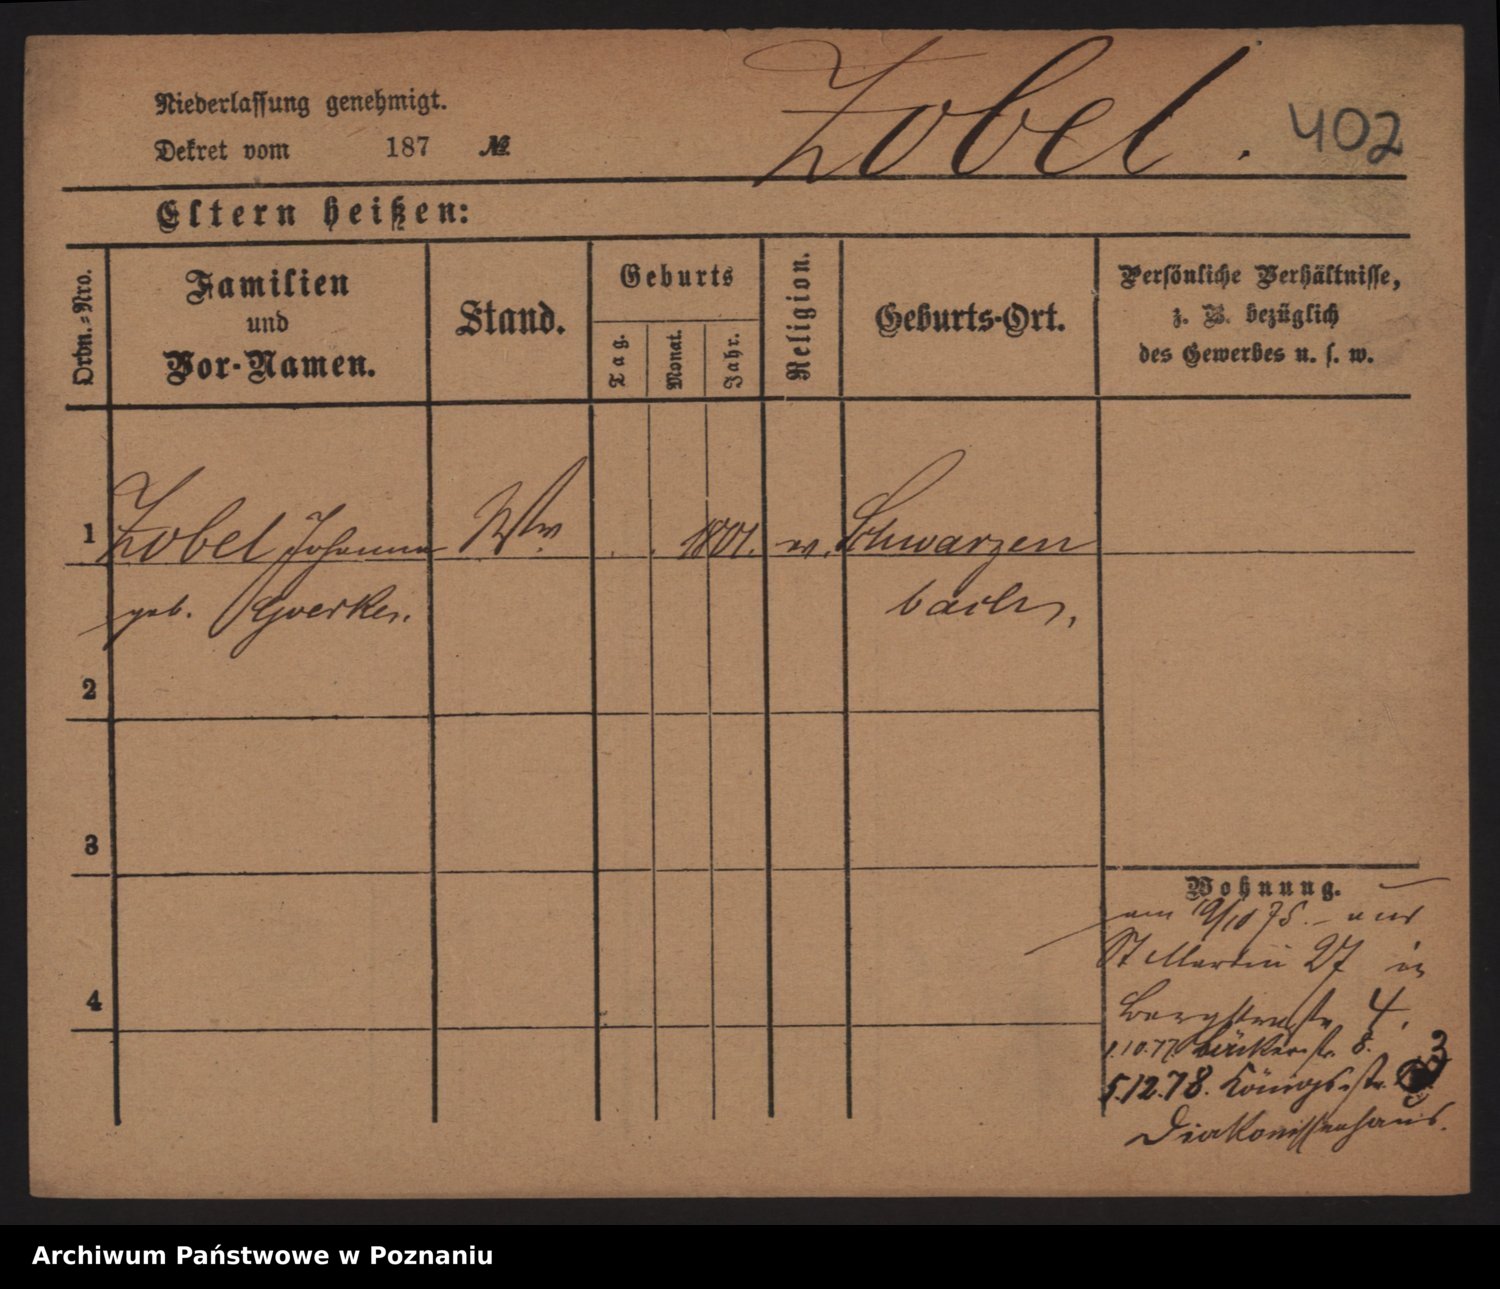 Niederlassung genehmigt.
Dekret vom 187 №
Zobel. 402
Eltern heißen:
Ordn.=Nro.
Familien
und
Vor-Namen.
Stand.
Geburts
Tag.
Monat.
Jahr.
Religion.
Geburts-Ort.
Persönliche Verhältnisse,
z. B. bezüglich
des Gewerbes u. s. w.
1 Zobel Johanna Ww. 1801. Schwarzen
geb. bach.
2
3
4
Wohnung.
am 19/10 75. – aus
St Martin 27 in
Bergstraße 4.
1.10.77. Bäckerstr. 8.
5.12.78. Königsstr. 3
Diakonissenhaus.
Archiwum Państwowe w Poznaniu